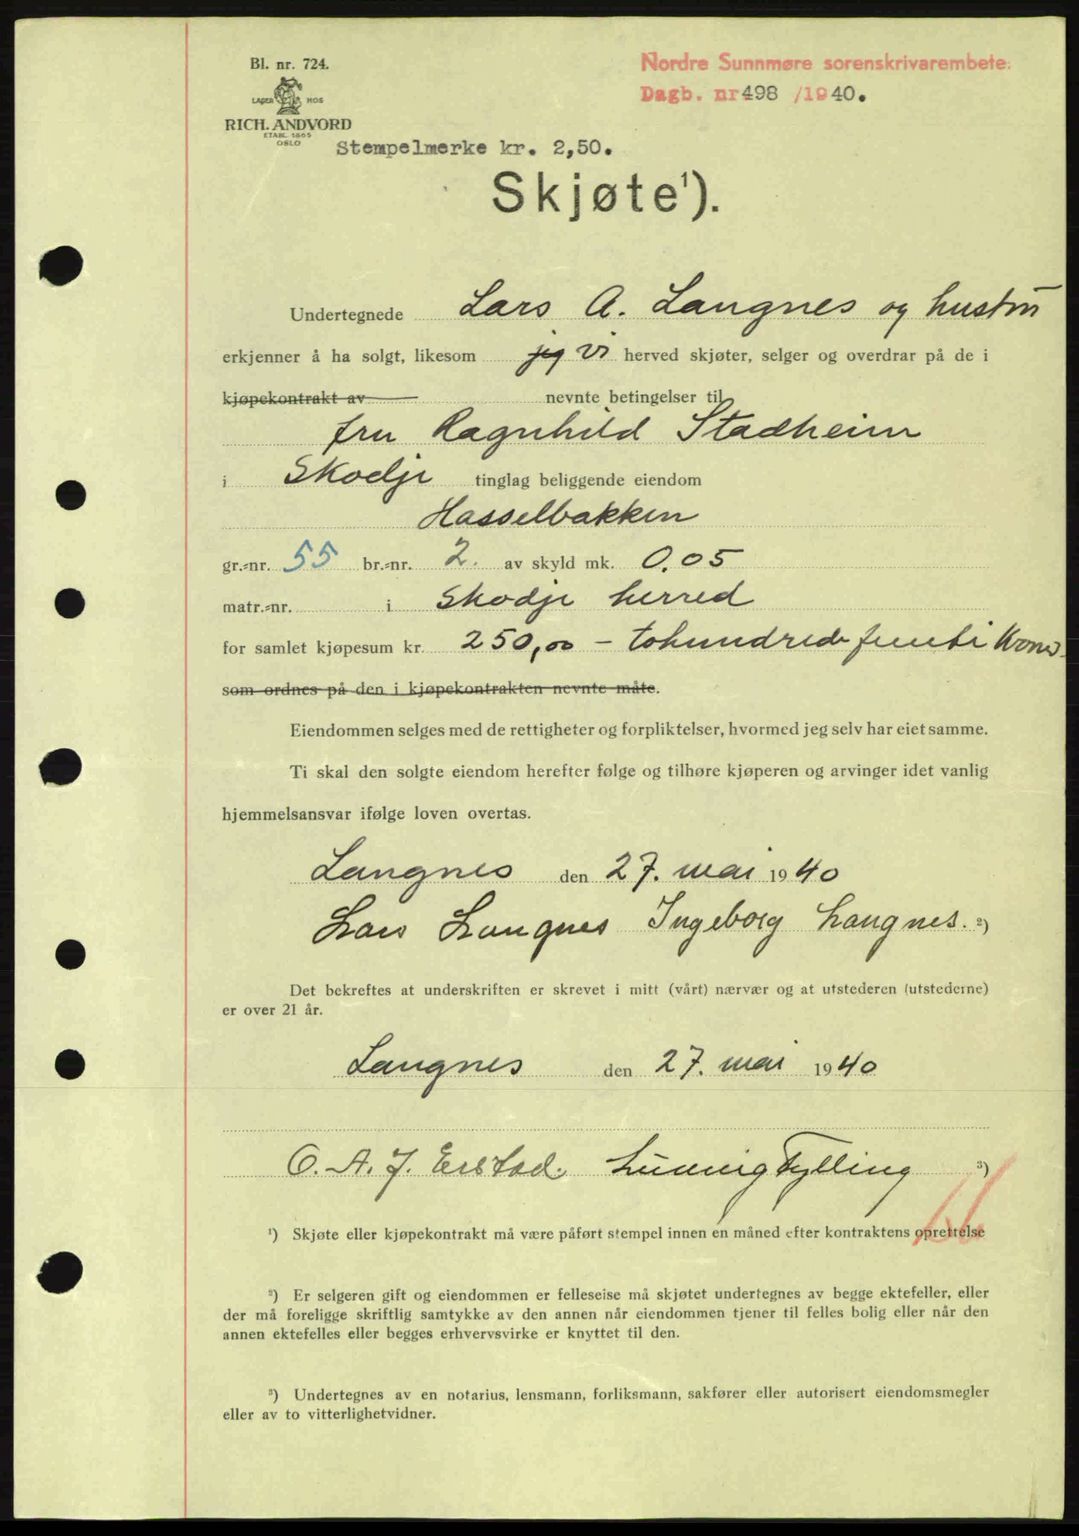 Bl. nr. 724.
LAGER HOS
RICH. ANDVORD
ETABL. 1865
OSLO
Nordre Sunnmøre sorenskrivarembete.
Dagb. nr 498 /1940.
Stempelmerke kr. 2,50.
Skjøte¹).
Undertegnede Lars A. Langnes og hustru
erkjenner å ha solgt, likesom jeg vi herved skjøter, selger og overdrar på de i
kjøpekontrakt av nevnte betingelser til
fru Ragnhild Stadheim
i Skodje tinglag beliggende eiendom
Hasselbakken
gr.-nr. 55 br.-nr. 2. av skyld mk. 0.05
matr.-nr. i Skodje herred
for samlet kjøpesum kr. 250,00 – tohundrede femti Kroner
som ordnes på den i kjøpekontrakten nevnte måte.
Eiendommen selges med de rettigheter og forpliktelser, hvormed jeg selv har eiet samme.
Ti skal den solgte eiendom herefter følge og tilhøre kjøperen og arvinger idet vanlig
hjemmelsansvar ifølge loven overtas.
Langnes den 27. mai 1940
Lars Langnes Ingeborg Langnes. ²)
Det bekreftes at underskriften er skrevet i mitt (vårt) nærvær og at utstederen (utstederne)
er over 21 år.
Langnes den 27. mai 1940
O. A. J. Erstad. Ludvig Tylling ³)
66
¹) Skjøte eller kjøpekontrakt må være påført stempel innen en måned efter kontraktens oprettelse
²) Er selgeren gift og eiendommen er felleseie må skjøtet undertegnes av begge ektefeller, eller
der må foreligge skriftlig samtykke av den annen når eiendommen tjener til felles bolig eller når den
annen ektefelles eller begges erhvervsvirke er knyttet til den.
³) Undertegnes av en notarius, lensmann, forliksmann, sakfører eller autorisert eiendomsmegler
eller av to vitterlighetvidner.